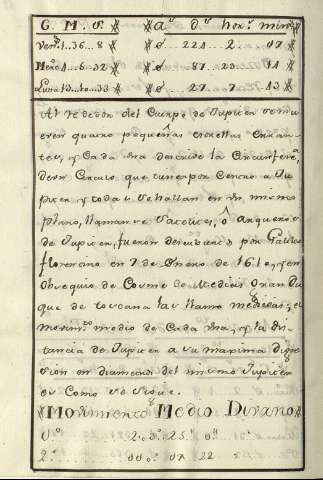 G. M. S. A.s d.s hor.s min.s
Ven.s 1..36..8 0 224 2. 47
Mer.o 4..6..32 0 87 23 14
Luna 13..10..33 0 27 7 43
Al rededor del Cuerpo de Jupiter se mu
even quatro pequeñas estrellas erran
tes, y Cada una describe la Circunferª
de un Circulo que tiene por Centro a Ju
piter, y todas se hallan en un mismo
plano, llamanse Satelites, ô Arqueros
de Jupiter, fueron descubiertos por Galileo
florentino en 7 de Enero de 1610, y en
Obsequio de Cosme de Medicis Gran Du
que de toscana las llamo mediceas; el
movim.to medio de Cada una, y la Dis
tancia de Jupiter a su maxima digre
sion en diametros del mismo Jupiter
es Como se sigue.
Movimiento Medio Diurno